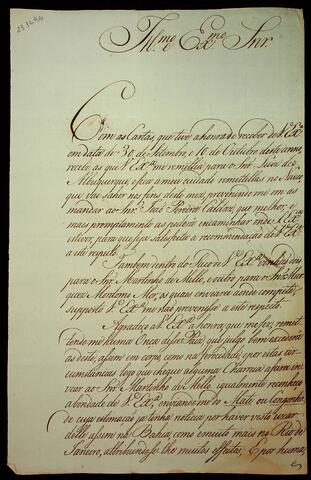 Ill.mo Ex.mo Snr.
Com as Cartas, que tive a honra de receber de V. Ex.a
em data de 30 de Setembro, e 10 de Outubro deste anno,
recebi as que V. Ex.a me remettia para o Snr. Luiz de
Albuquerque, e fica a meu cuidado remettellas no Navio
que vai sahir nos fins deste mez, prevenindo-me em as
mandar ao Snr. João Pereira Caldas, que melhor, e
mais promptamente as poderá encaminhar onde S. Ex.a
estiver, para que seja satisfeita a recommendação de V. Ex.a
a este respeito.
Tambem dentro do Saco de V. Ex.a
para o Snr. Martinho de Mello, e outro para o Snr. Mar-
quez Mordomo Mór, os quaes enviarei aonde compete,
supposto V. Ex.a me não prevenisse a este respeito.
Agradeço a V. Ex.a a honra, que me faz, remet-
tendo-me huma Onça desse Paiz, que julgo bem 
às deste, assim em corpo, como na ferocidade, e por estas cir-
cumstancias logo que chegue alguma Charrua a farei en-
viar ao Snr. Martinho de Mello, igualmente reconheço
a bondade de V. Ex.a, enviando-me o Mate, ou Congonha,
de cuja estimação já tinha noticia por haver visto uzar
delle assim na Bahia, como em muita mais no Rio de
Janeiro, attribuindo-se-lhe muitos effeitos, e por huma,